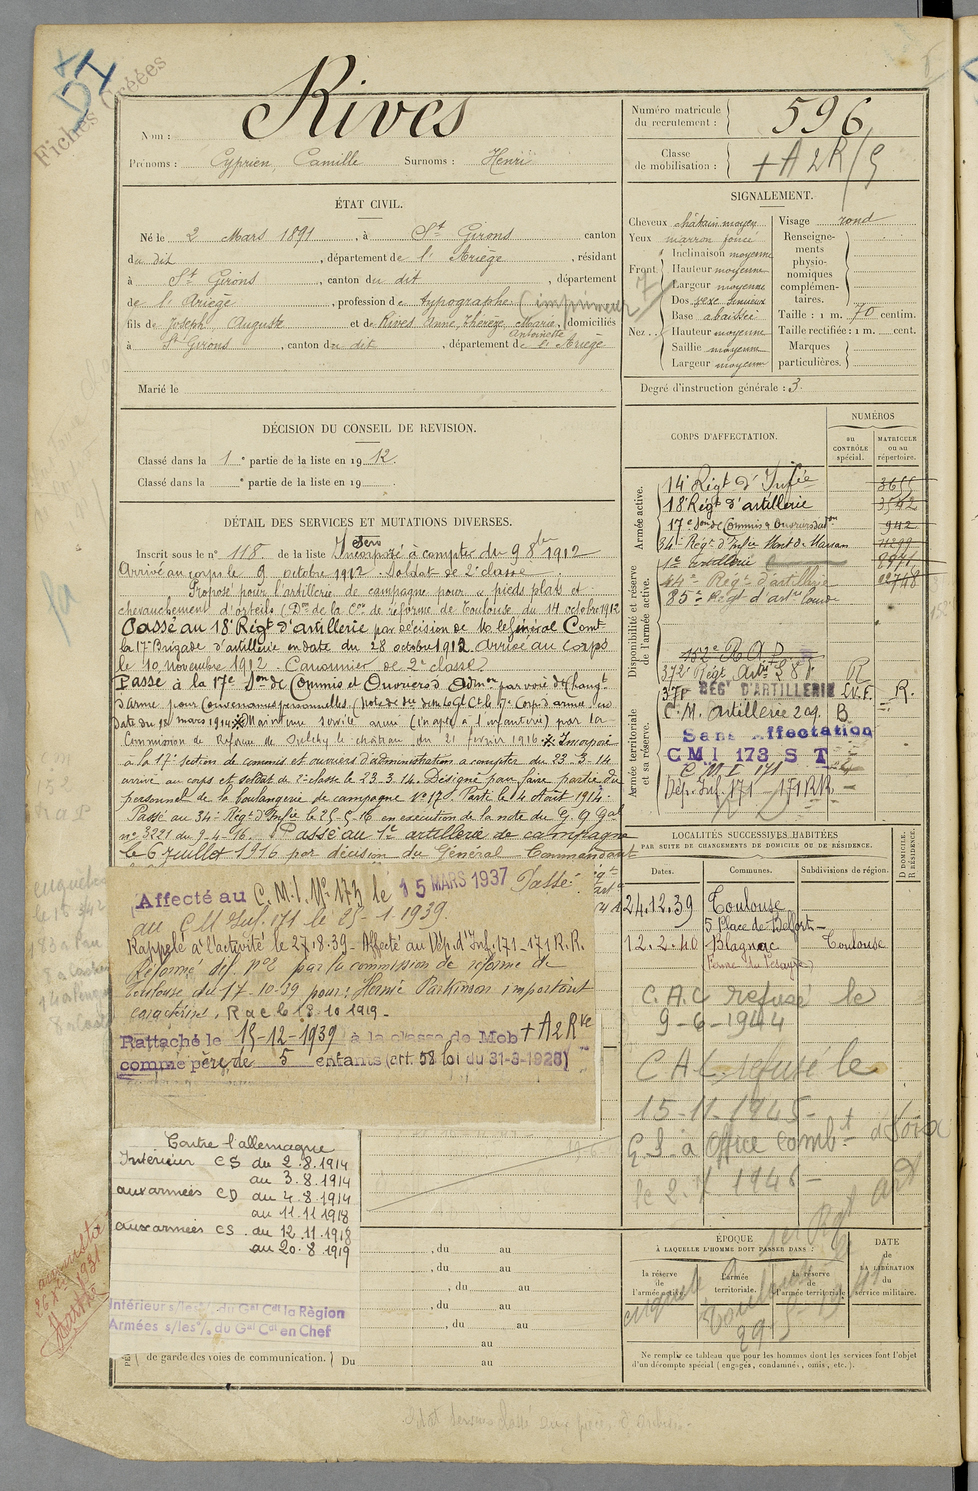 Fiches Créées
DI
Nom : Rives
Prénoms : Cyprien, Camille Surnoms : Henri
Numéro matricule du recrutement : 596
Classe de mobilisation : + A 2 R/G
ÉTAT CIVIL.
Né le 2 Mars 1891, à St Girons canton
du dit, département de l'Ariège, résidant
à St Girons, canton du dit, département
de l'Ariège, profession de typographe (imprimeur)
fils de Joseph, Auguste et de Rives Anne, Thérèse, Marie, Antoinette domiciliés
à St Girons, canton du dit, département de l'Ariège
Marié le
SIGNALEMENT.
Cheveux châtain moyen
Yeux marron foncé
Front Inclinaison moyenne
Hauteur moyenne
Largeur moyenne
Nez Dos
Base abaissée
Hauteur moyenne
Saillie moyenne
Largeur moyenne
Visage rond
Renseignements physionomiques complémentaires.
Taille : 1 m. 70 centim.
Taille rectifiée : 1 m. cent.
Marques particulières.
Degré d'instruction générale : 3
DÉCISION DU CONSEIL DE REVISION.
Classé dans la 1e partie de la liste en 1912.
Classé dans la e partie de la liste en 19
DÉTAIL DES SERVICES ET MUTATIONS DIVERSES.
Inscrit sous le n° 118 de la liste Incorporé à compter du 9 8bre 1912
Arrivé au corps le 9 octobre 1912. Soldat de 2e classe
Proposé pour l'artillerie de campagne pour « pieds plats et
chevauchement d'orteils (Don de la Con de réforme de Toulouse du 14 octobre 1912
Passé au 18e Régt d'artillerie par décision de M le Général Comt
la 17e Brigade d'artillerie en date du 28 octobre 1912. Arrivé au corps
le 10 novembre 1912. Canonnier de 2e classe
Passé à la 17e Son de Commis et Ouvriers d'Admon par voie de Changt
d'arme pour convenances personnelles
date du 18 mars 1914 Maintenu service armé (inapte à l'infanterie) par la
Commission de Réforme de Oulchy le château du 21 février 1916. Incorporé
à la 17e section de commis et ouvriers d'administration à compter du 23-3-14
arrivé au corps et soldat de 2e classe le 23.3.14. Désigné pour faire partie du
personnel de la boulangerie de campagne N° 17. Parti le 4 Août 1914.
Passé au 34e Régt d'Infie le 25-5-16 en exécution de la note du G.Q. Gal
n° 3221 du 9-4-16. Passé au 1er artillerie de campagne
le 6 juillet 1916 par décision du Général Commandant
Affecté au C.M.I. N° 173 le 15 MARS 1937 Passé
au CM Inf. 171 le 25-1-1939.
Rappelé à l'activité le 27.8.39 - Affecté au Dép. d'Inf. 171 - 171 R.R.
Réformé déf. N°2 par la commission de réforme de
Toulouse du 17-10-39 pour : Hernie Parkinson important
caractérisé. Rac le 18.10.1919.
Rattaché le 15-12-1939 à la classe de Mob + A 2 Rve
comme père de 5 enfants (art. 58 loi du 31-3-1928)
Contre l'allemagne
Intérieur CS du 2.8.1914
au 3.8.1914
aux armées CD du 4.8.1914
au 11.11.1918
aux armées CS du 12.11.1918
au 20.8.1919
Intérieur s/les % du Gal Cdt la Région
Armées s/les % du Gal Cdt en Chef
, du au
, du au
, du au
, du au
, du au
au
de garde des voies de communication. Du au
CORPS D'AFFECTATION.
NUMÉROS
au CONTRÔLE spécial.
MATRICULE ou au répertoire.
Armée active.
14e Régt d'Infie 3655
18e Régt d'artillerie 3542
17e Son de Commis & Ouvriers d'admon 942
34e Régt d'Infie Mont de Marsan 11299
Disponibilité et réserve de l'armée active.
1er artillerie 8971
Régt d'artillerie
85e Régt d'artie lourde
Armée territoriale et sa réserve.
372e Régt Artie R
RÉGT D'ARTILLERIE R.
C.M. Artillerie 209. B
Sans Affectation
CMI 173 S T
C M I 171
Dép. Inf. 171 - 171 R.R.
LOCALITÉS SUCCESSIVES HABITÉES
PAR SUITE DE CHANGEMENTS DE DOMICILE OU DE RÉSIDENCE.
Dates. Communes. Subdivisions de région. D DOMICILE. R RÉSIDENCE.
24.12.39 Toulouse
5 Place de Belfort
12.2.40 Blagnac Toulouse
C.A.C refusé le
9-6-1944
C A C refusé le
15-11-1945
G.S. à Office Combt
le 2. 1946
ÉPOQUE
À LAQUELLE L'HOMME DOIT PASSER DANS :
la réserve de l'armée active.
l'armée territoriale.
la réserve de l'armée territoriale
DATE de LA LIBÉRATION du service militaire.
Ne remplir ce tableau que pour les hommes dont les services font l'objet
d'un décompte spécial (engagés, condamnés, omis, etc.).